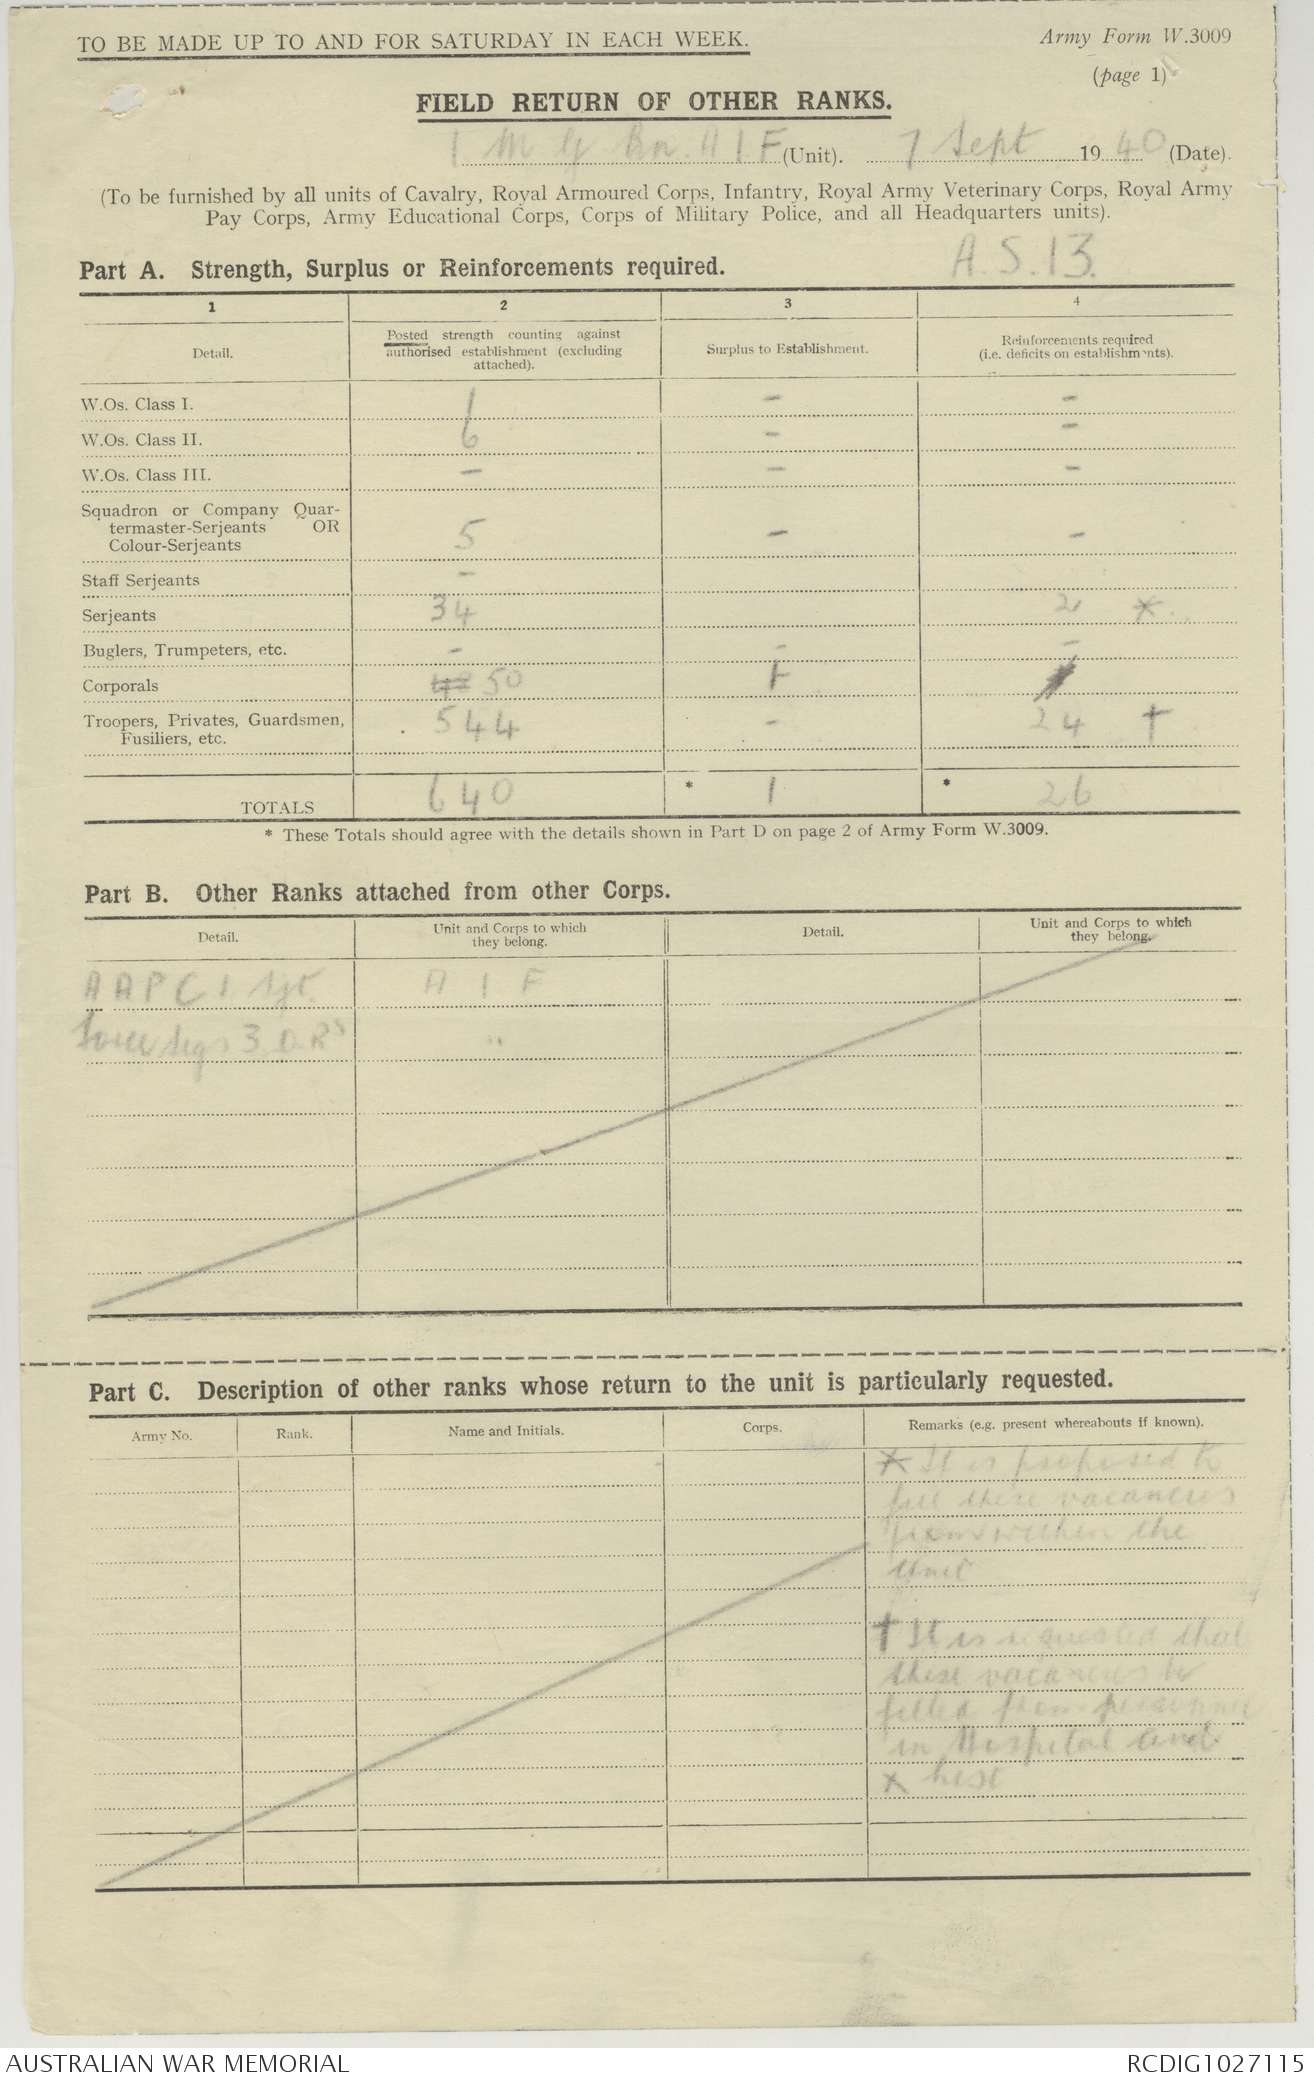 TO BE MADE UP TO AND FOR SATURDAY IN EACH WEEK.
Army Form W.3009
(page 1)
FIELD RETURN OF OTHER RANKS.
1 M G Bn. A I F (Unit). 7 Sept 1940 (Date).
(To be furnished by all units of Cavalry, Royal Armoured Corps, Infantry, Royal Army Veterinary Corps, Royal Army
Pay Corps, Army Educational Corps, Corps of Military Police, and all Headquarters units).
A.S.13.
Part A. Strength, Surplus or Reinforcements required.
1 2 3 4
Detail.
Posted strength counting against
authorised establishment (excluding
attached).
Surplus to Establishment.
Reinforcements required
(i.e. deficits on establishments).
W.Os. Class I. 1 - -
W.Os. Class II. 6 - -
W.Os. Class III. - - -
Squadron or Company Quar-
termaster-Serjeants OR
Colour-Serjeants 5 - -
Staff Serjeants -
Serjeants 34 2 *
Buglers, Trumpeters, etc. - - -
Corporals 50 1
Troopers, Privates, Guardsmen,
Fusiliers, etc. 544 - 24 †
TOTALS 640 * 1 * 26
* These Totals should agree with the details shown in Part D on page 2 of Army Form W.3009.
Part B. Other Ranks attached from other Corps.
Detail.
Unit and Corps to which
they belong.
Detail.
Unit and Corps to which
they belong.
A A P C 1 Sgt. A I F
Sigs 3 O.Rs "
Part C. Description of other ranks whose return to the unit is particularly requested.
Army No. Rank. Name and Initials. Corps. Remarks (e.g. present whereabouts if known).
* It is proposed to
fill these vacancies
from within the
Unit
† It is requested that
these vacancies be
filled from personnel
in Hospital and
AUSTRALIAN WAR MEMORIAL
RCDIG1027115